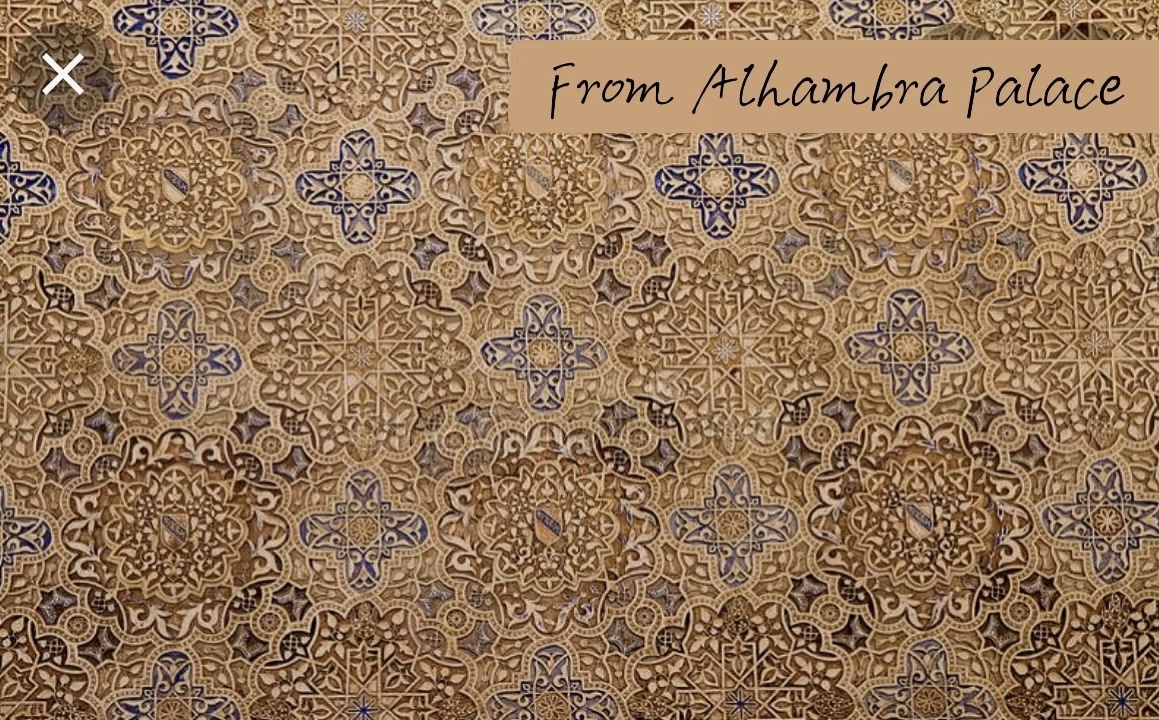 From Alhambra Palace